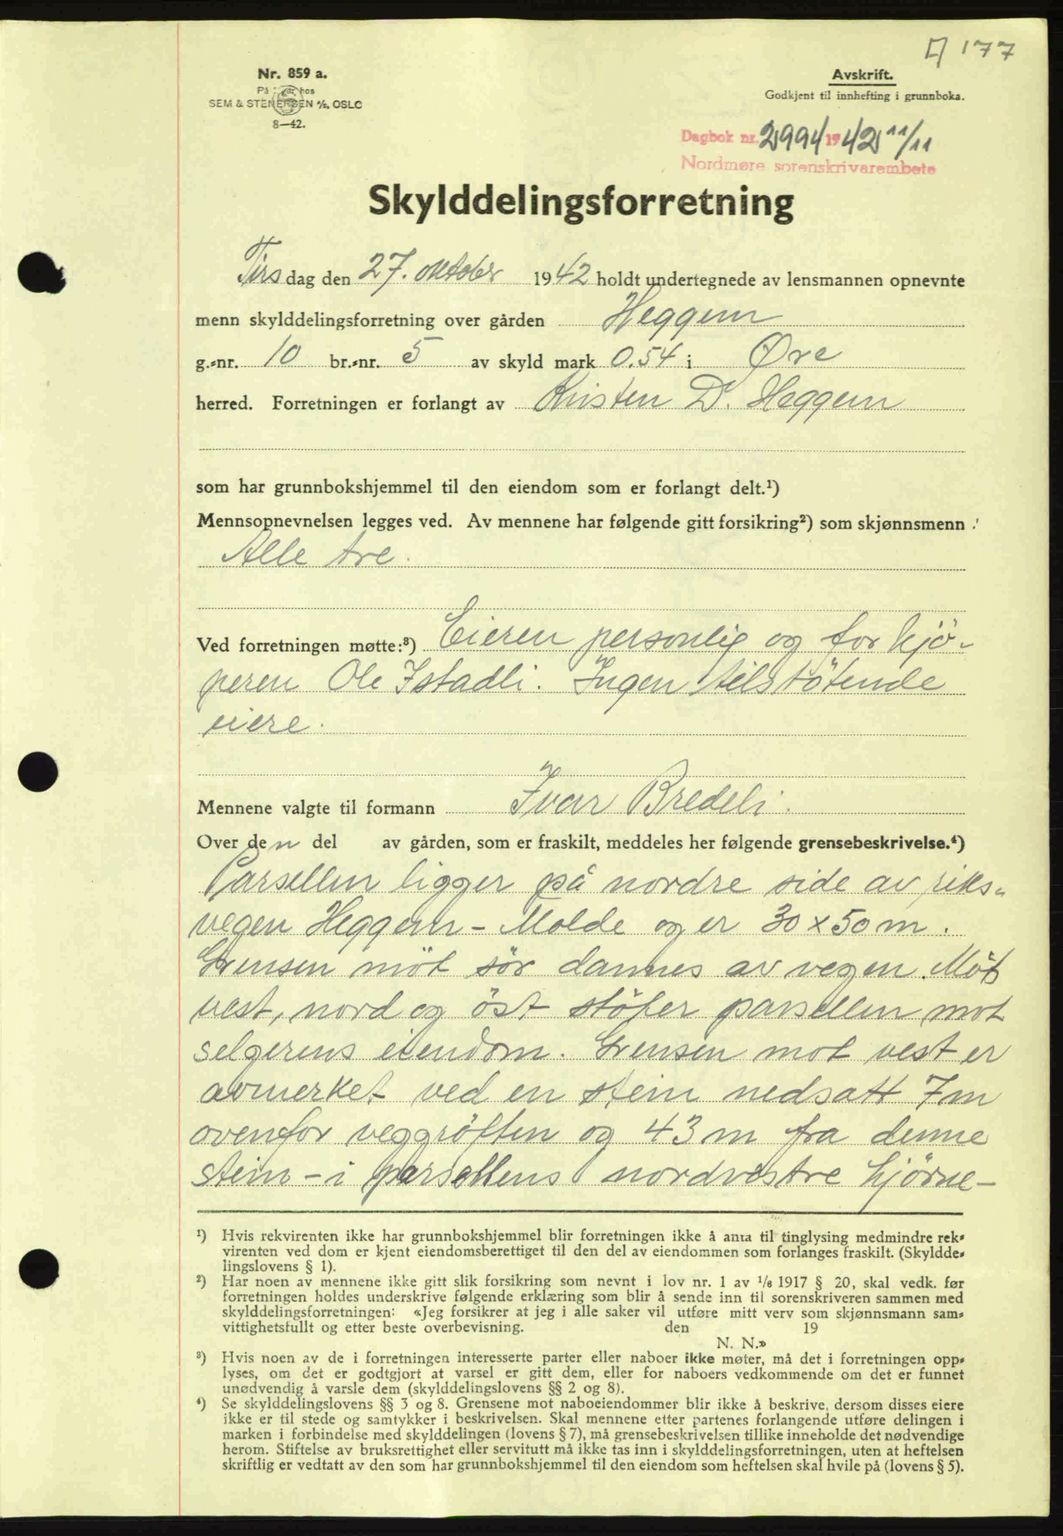 177
Nr. 859 a.
Avskrift.
På hos
Godkjent til innhefting i grunnboka.
SEM & STENERSEN A/S, OSLO
8—42.
Dagbok nr. 2994 1942 11/11
Nordmøre sorenskrivarembete
Skylddelingsforretning
Tirsdag den 27. oktober 1942 holdt undertegnede av lensmannen opnevnte
menn skylddelingsforretning over gården Heggem
g.-nr. 10 br.-nr. 5 av skyld mark 0.54 i Øre
herred. Forretningen er forlangt av Kristen D. Heggem
som har grunnbokshjemmel til den eiendom som er forlangt delt.¹)
Mennsopnevnelsen legges ved. Av mennene har følgende gitt forsikring²) som skjønnsmenn:
Alle tre.
Ved forretningen møtte:³) Eieren personlig og for kjö-
peren Ole Istadli. Ingen tilstötende
eiere.
Mennene valgte til formann Ivar Bredeli.
Over den del av gården, som er fraskilt, meddeles her følgende grensebeskrivelse.⁴)
Parsellen ligger på nordre side av riks-
vegen Heggem - Molde og er 30 x 50 m.
Grensen möt sör dannes av vegen. Möt
vest, nord og öst stöter parsellen mot
selgerens eiendom. Grensen mot vest er
avmerket ved en stein nedsatt 7 m
ovenfor veggröften og 43 m fra denne
stein - i parsellens nordvestre hjörne -
¹) Hvis rekvirenten ikke har grunnbokshjemmel blir forretningen ikke å anta til tinglysing medmindre rek-
virenten ved dom er kjent eiendomsberettiget til den del av eiendommen som forlanges fraskilt. (Skyldde-
lingslovens § 1).
²) Har noen av mennene ikke gitt slik forsikring som nevnt i lov nr. 1 av 1/6 1917 § 20, skal vedk. før
forretningen holdes underskrive følgende erklæring som blir å sende inn til sorenskriveren sammen med
skylddelingsforretningen: «Jeg forsikrer at jeg i alle saker vil utføre mitt verv som skjønnsmann sam-
vittighetsfullt og etter beste overbevisning. den 19
N. N.»
³) Hvis noen av de i forretningen interesserte parter eller naboer ikke møter, må det i forretningen opp-
lyses, om det er godtgjort at varsel er gitt dem, eller for naboers vedkommende om det er funnet
unødvendig å varsle dem (skylddelingslovens §§ 2 og 8).
⁴) Se skylddelingslovens §§ 3 og 8. Grensene mot naboeiendommer blir ikke å beskrive, dersom disses eiere
ikke er til stede og samtykker i beskrivelsen. Skal mennene etter partenes forlangende utføre delingen i
marken i forbindelse med skylddelingen (lovens § 7), må grensebeskrivelsen tillike inneholde det nødvendige
herom. Stiftelse av bruksrettighet eller servitutt må ikke tas inn i skylddelingsforretningen, uten at heftelsen
skriftlig er vedtatt av den som har grunnbokshjemmel til den eiendom som heftelsen skal hvile på (lovens § 5).